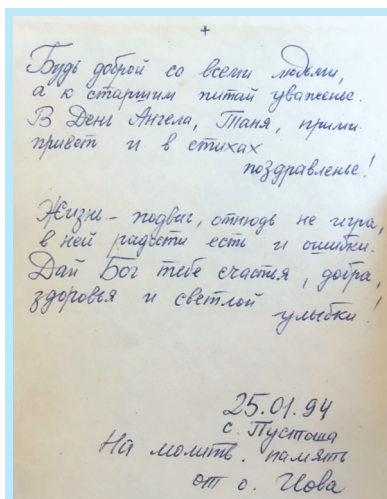 +
Будь доброй со всеми людьми,
а к старшим питай уваженье.
В День Ангела, Таня, прими
привет и в стихах
поздравленье!
Жизнь – подвиг, отнюдь не игра,
в ней радости есть и ошибки.
Дай Бог тебе счастья, добра,
здоровья и светлой
улыбки!
25.01.94
с. Пустоша
На молитв. память
от о. Иова